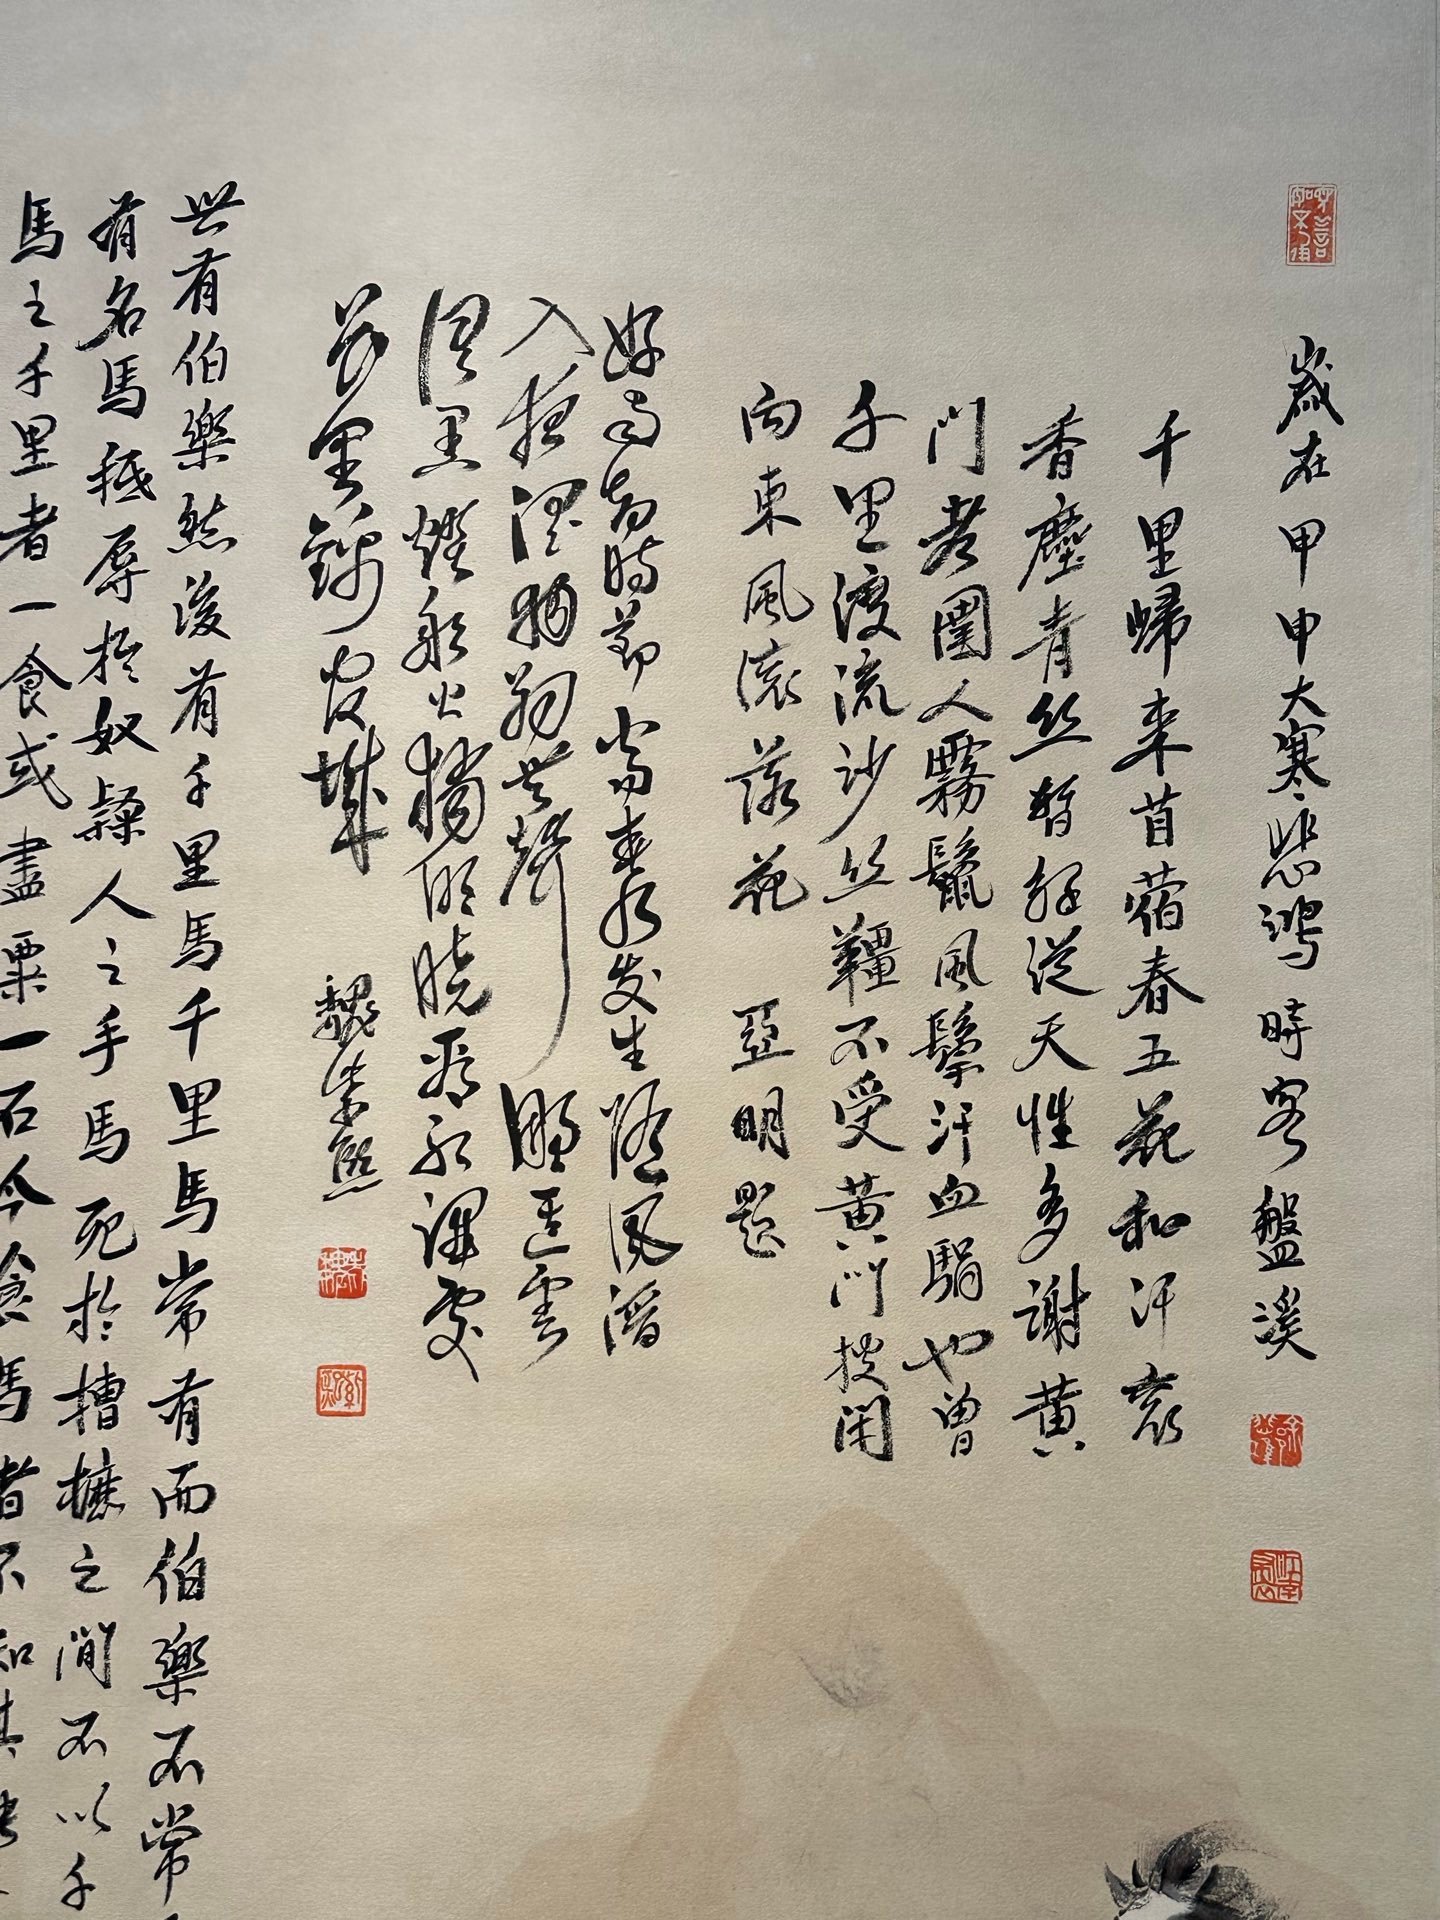 歲在甲申大寒悲鴻時客盤溪
千里歸來苜蓿春五花和汗衮
香塵青丝暫解從天性多謝黃
門老圉人霧鬣風鬃汗血駒也曾
千里渡流沙丝韁不受黃門控闲
向東風滚落花 亞明題
好雨知時節當春乃发生隨风潛
入夜潤物細無聲野徑雲
俱黑燈船火獨明曉看紅濕處
花重錦官城 魏紫熙
世有伯樂然後有千里馬千里馬常有而伯樂不常
有名馬秪辱於奴隸人之手馬死於槽櫪之間不以千
馬之千里者一食或盡粟一石今食馬者不知其